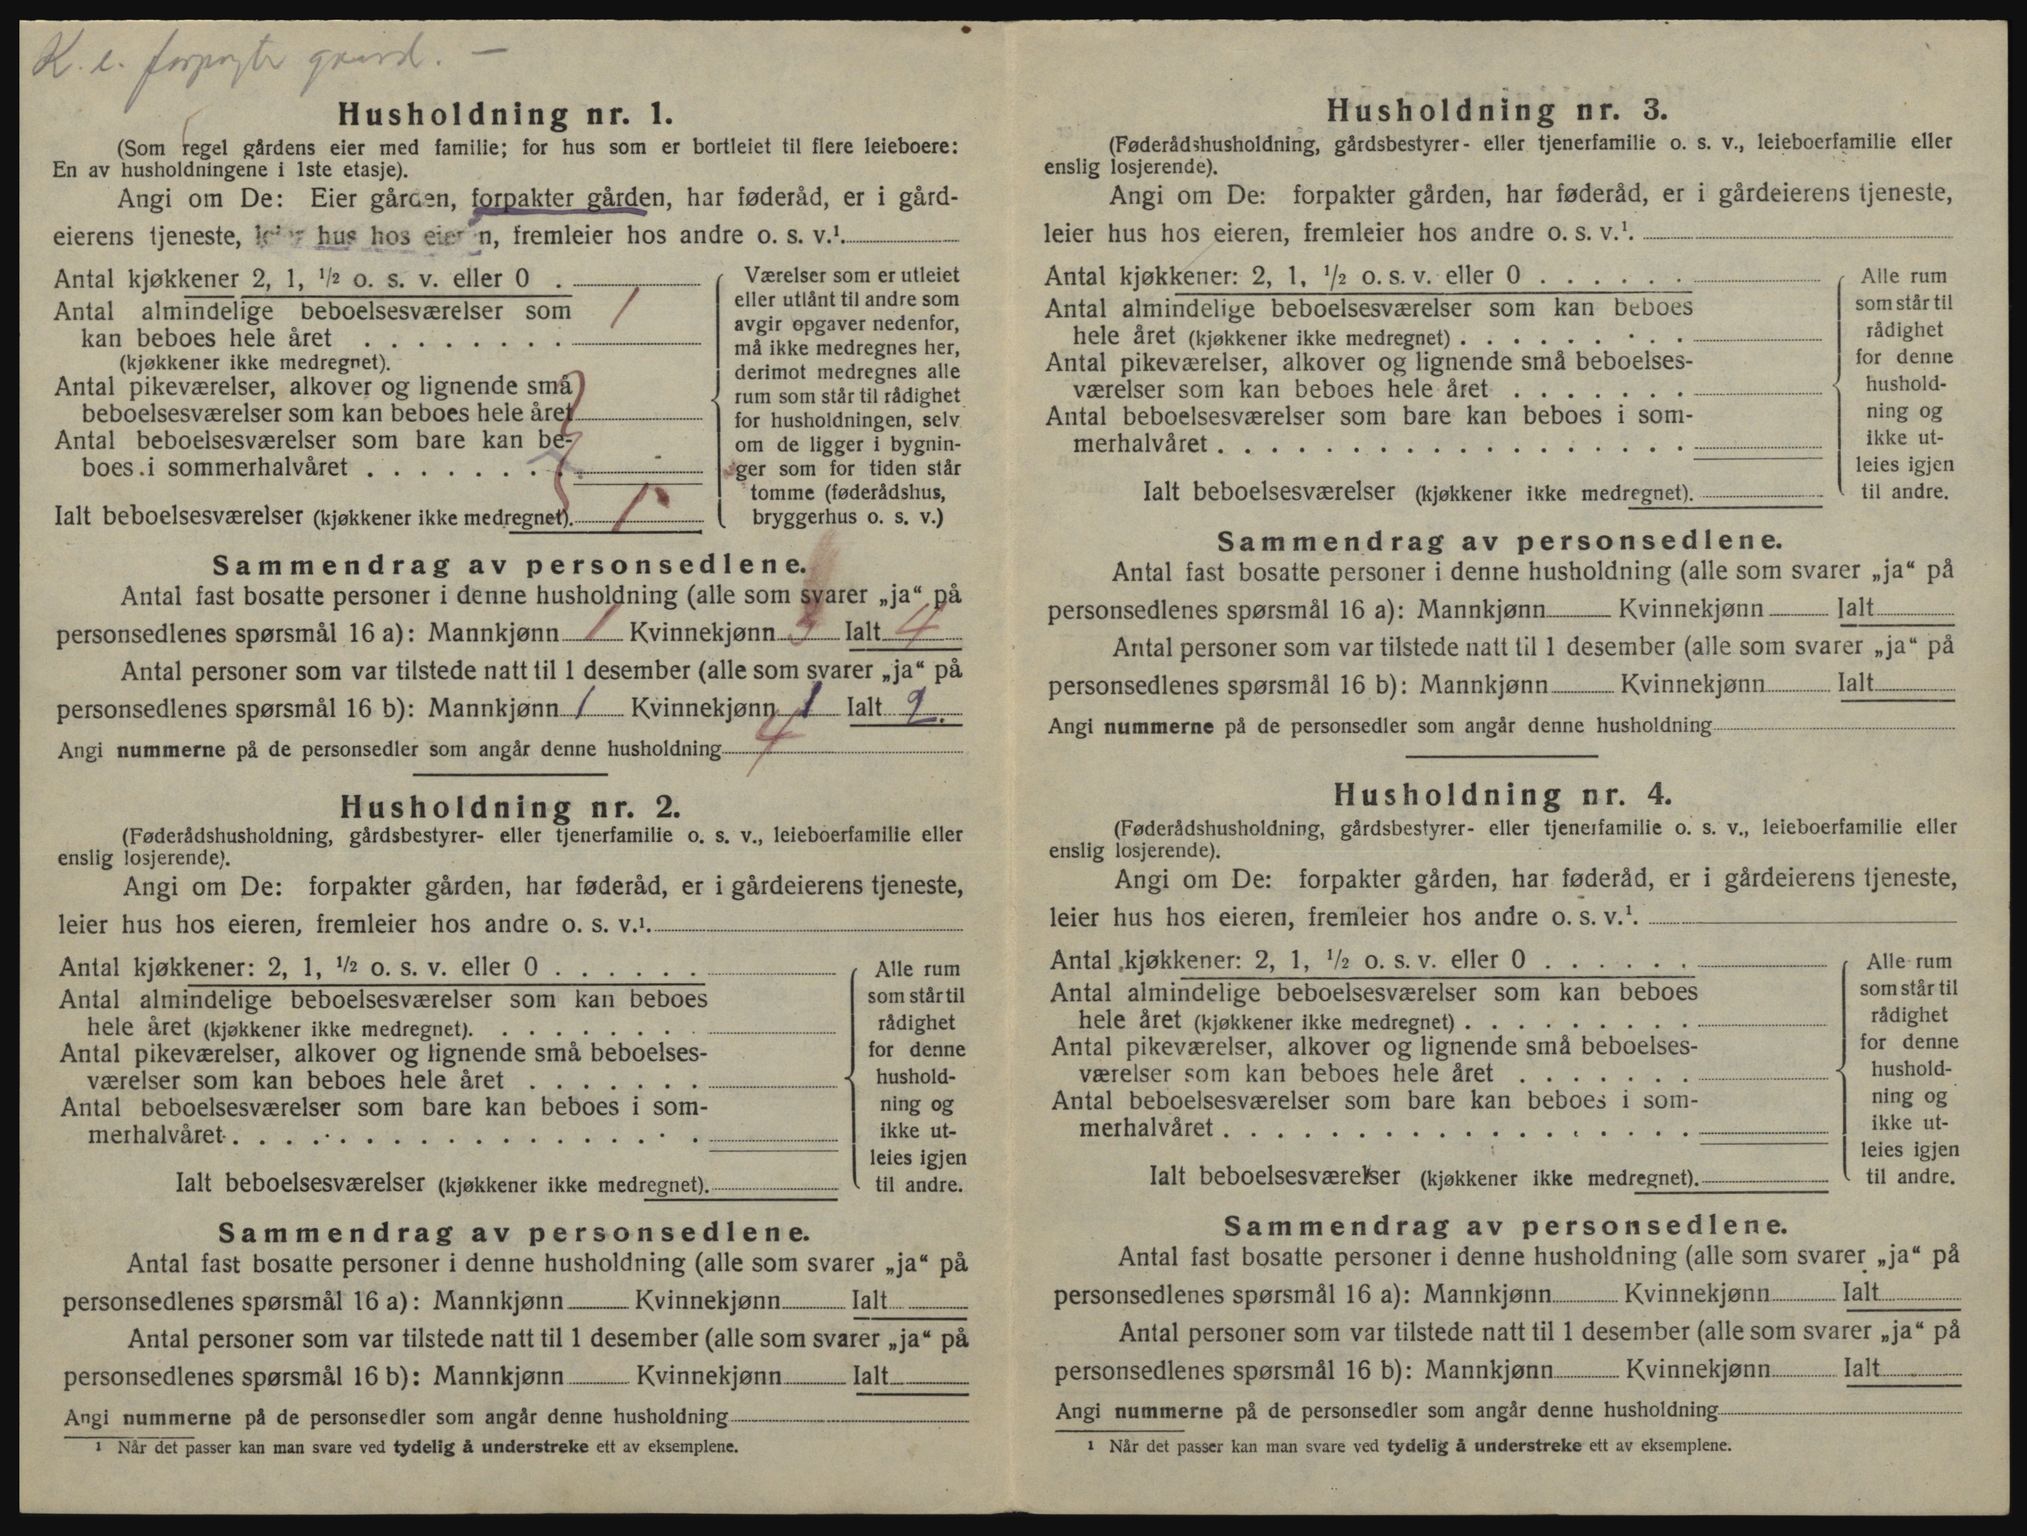 K. e. forpagte gaard. —
Husholdning nr. 1.
(Som regel gårdens eier med familie; for hus som er bortleiet til flere leieboere:
En av husholdningene i 1ste etasje).
Angi om De: Eier gården, forpakter gården, har føderåd, er i gård-
eierens tjeneste, leier hus hos eieren, fremleier hos andre o. s. v.¹.
Antal kjøkkener 2, 1, ½ o. s. v. eller 0 .
Antal almindelige beboelsesværelser som
kan beboes hele året . . . . . . . . 1
(kjøkkener ikke medregnet).
Antal pikeværelser, alkover og lignende små
beboelsesværelser som kan beboes hele året
Antal beboelsesværelser som bare kan be-
boes i sommerhalvåret . . . . . . . .
Ialt beboelsesværelser (kjøkkener ikke medregnet). 1
Værelser som er utleiet
eller utlånt til andre som
avgir opgaver nedenfor,
må ikke medregnes her,
derimot medregnes alle
rum som står til rådighet
for husholdningen, selv
om de ligger i bygnin-
ger som for tiden står
tomme (føderådshus,
bryggerhus o. s. v.)
Sammendrag av personsedlene.
Antal fast bosatte personer i denne husholdning (alle som svarer „ja“ på
personsedlenes spørsmål 16 a): Mannkjønn 1 Kvinnekjønn 3 Ialt 4
Antal personer som var tilstede natt til 1 desember (alle som svarer „ja“ på
personsedlenes spørsmål 16 b): Mannkjønn 1 Kvinnekjønn 1 Ialt 2.
Angi nummerne på de personsedler som angår denne husholdning 4
Husholdning nr. 2.
(Føderådshusholdning, gårdsbestyrer- eller tjenerfamilie o. s. v., leieboerfamilie eller
enslig losjerende).
Angi om De: forpakter gården, har føderåd, er i gårdeierens tjeneste,
leier hus hos eieren, fremleier hos andre o. s. v.¹.
Antal kjøkkener: 2, 1, ½ o. s. v. eller 0 . . . . . .
Antal almindelige beboelsesværelser som kan beboes
hele året (kjøkkener ikke medregnet). . . . . . . . .
Antal pikeværelser, alkover og lignende små beboelses-
værelser som kan beboes hele året . . . . . . .
Antal beboelsesværelser som bare kan beboes i som-
merhalvåret. . . . . . . . . . . . . . . . . .
Ialt beboelsesværelser (kjøkkener ikke medregnet).
Alle rum
som står til
rådighet
for denne
hushold-
ning og
ikke ut-
leies igjen
til andre.
Sammendrag av personsedlene.
Antal fast bosatte personer i denne husholdning (alle som svarer „ja“ på
personsedlenes spørsmål 16 a): Mannkjønn Kvinnekjønn Ialt
Antal personer som var tilstede natt til 1 desember (alle som svarer „ja“ på
personsedlenes spørsmål 16 b): Mannkjønn Kvinnekjønn Ialt
Angi nummerne på de personsedler som angår denne husholdning
¹ Når det passer kan man svare ved tydelig å understreke ett av eksemplene.
Husholdning nr. 3.
(Føderådshusholdning, gårdsbestyrer- eller tjenerfamilie o. s. v., leieboerfamilie eller
enslig losjerende).
Angi om De: forpakter gården, har føderåd, er i gårdeierens tjeneste,
leier hus hos eieren, fremleier hos andre o. s. v.¹.
Antal kjøkkener: 2, 1, ½ o. s. v. eller 0 . . . . . .
Antal almindelige beboelsesværelser som kan beboes
hele året (kjøkkener ikke medregnet) . . . . . . . . .
Antal pikeværelser, alkover og lignende små beboelses-
værelser som kan beboes hele året . . . . . . .
Antal beboelsesværelser som bare kan beboes i som-
merhalvåret . . . . . . . . . . . . . . . . . .
Ialt beboelsesværelser (kjøkkener ikke medregnet).
Alle rum
som står til
rådighet
for denne
hushold-
ning og
ikke ut-
leies igjen
til andre.
Sammendrag av personsedlene.
Antal fast bosatte personer i denne husholdning (alle som svarer „ja“ på
personsedlenes spørsmål 16 a): Mannkjønn Kvinnekjønn Ialt
Antal personer som var tilstede natt til 1 desember (alle som svarer „ja“ på
personsedlenes spørsmål 16 b): Mannkjønn Kvinnekjønn Ialt
Angi nummerne på de personsedler som angår denne husholdning
Husholdning nr. 4.
(Føderådshusholdning, gårdsbestyrer- eller tjenerfamilie o. s. v., leieboerfamilie eller
enslig losjerende).
Angi om De: forpakter gården, har føderåd, er i gårdeierens tjeneste,
leier hus hos eieren, fremleier hos andre o. s. v.¹.
Antal kjøkkener: 2, 1, ½ o. s. v. eller 0 . . . . . .
Antal almindelige beboelsesværelser som kan beboes
hele året (kjøkkener ikke medregnet) . . . . . . . . .
Antal pikeværelser, alkover og lignende små beboelses-
værelser som kan beboes hele året . . . . . . .
Antal beboelsesværelser som bare kan beboes i som-
merhalvåret . . . . . . . . . . . . . . . . . .
Ialt beboelsesværelser (kjøkkener ikke medregnet).
Alle rum
som står til
rådighet
for denne
hushold-
ning og
ikke ut-
leies igjen
til andre.
Sammendrag av personsedlene.
Antal fast bosatte personer i denne husholdning (alle som svarer „ja“ på
personsedlenes spørsmål 16 a): Mannkjønn Kvinnekjønn Ialt
Antal personer som var tilstede natt til 1 desember (alle som svarer „ja“ på
personsedlenes spørsmål 16 b): Mannkjønn Kvinnekjønn Ialt
Angi nummerne på de personsedler som angår denne husholdning
¹ Når det passer kan man svare ved tydelig å understreke ett av eksemplene.